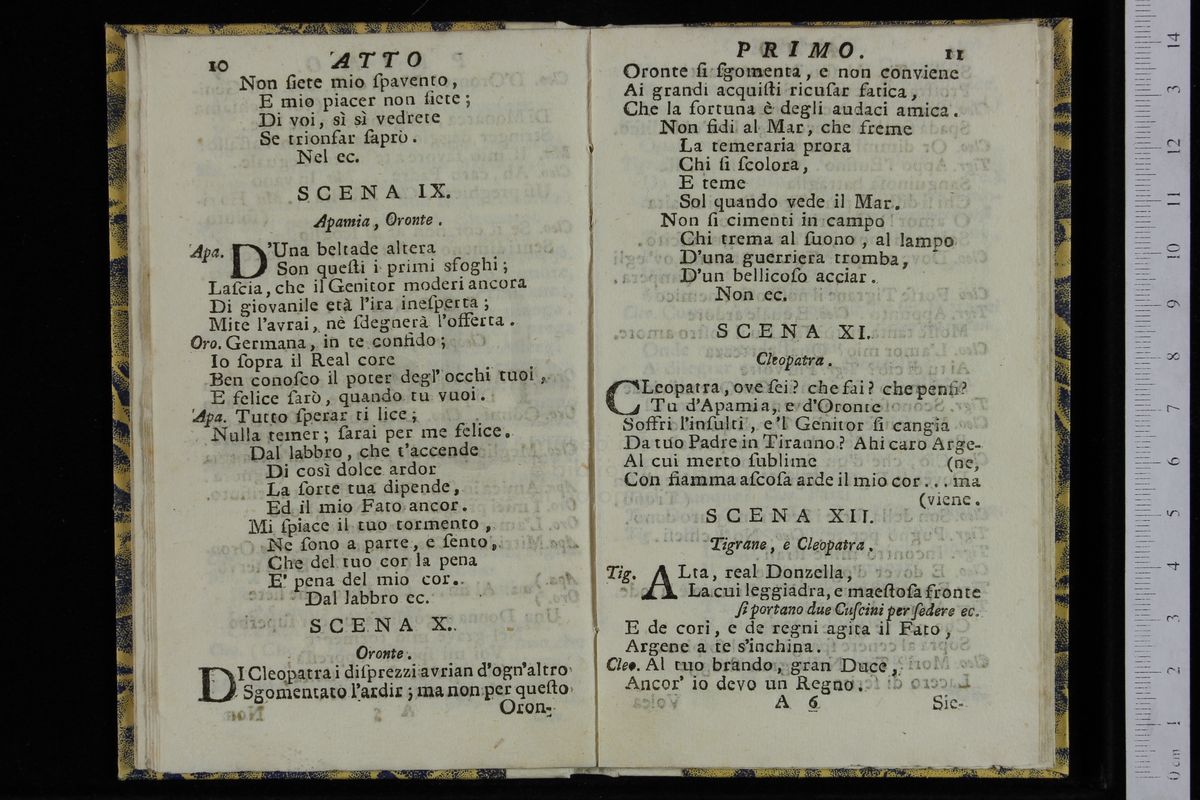 10 ATTO
Non ſiete mio ſpavento,
E mio piacer non ſiete;
Di voi, sì sì vedrete
Se trionfar ſaprò.
Nel ec.
SCENA IX.
Apamia, Oronte.
Apa. D'Una beltade altera
Son queſti i primi sfoghi;
Laſcia, che il Genitor moderi ancora
Di giovanile età l'ira ineſperta;
Mite l'avrai, nè ſdegnerà l'offerta.
Oro. Germana, in te confido;
Io ſopra il Real core
Ben conoſco il poter degl' occhi tuoi,
E felice ſarò, quando tu vuoi.
Apa. Tutto ſperar ti lice;
Nulla temer; ſarai per me felice.
Dal labbro, che t'accende
Di così dolce ardor
La ſorte tua dipende,
Ed il mio Fato ancor.
Mi ſpiace il tuo tormento,
Ne ſono a parte, e ſento,
Che del tuo cor la pena
E' pena del mio cor.
Dal labbro ec.
SCENA X.
Oronte.
DI Cleopatra i diſprezzi avrian d'ogn'altro
Sgomentato l'ardir; ma non per queſto
Oron-
PRIMO. 11
Oronte ſi ſgomenta, e non conviene
Ai grandi acquiſti ricuſar fatica,
Che la fortuna è degli audaci amica.
Non fidi al Mar, che freme
La temeraria prora
Chi ſi ſcolora,
E teme
Sol quando vede il Mar.
Non ſi cimenti in campo
Chi trema al ſuono, al lampo
D'una guerriera tromba,
D'un bellicoſo acciar.
Non ec.
SCENA XI.
Cleopatra.
CLeopatra, ove ſei? che fai? che penſi?
Tu d'Apamia, e d'Oronte
Soffri l'inſulti, e'l Genitor ſi cangia
Da tuo Padre in Tiranno? Ahi caro Arge-
Al cui merto ſublime (ne,
Con fiamma aſcoſa arde il mio cor... ma
(viene.
SCENA XII.
Tigrane, e Cleopatra.
Tig. ALta, real Donzella,
La cui leggiadra, e maeſtoſa fronte
ſi portano due Cuſcini per ſedere ec.
E de cori, e de regni agita il Fato,
Argene a te s'inchina.
Cleo. Al tuo brando, gran Duce,
Ancor' io devo un Regno.
A 6 Sie-
0 cm 1 2 3 4 5 6 7 8 9 10 11 12 13 14